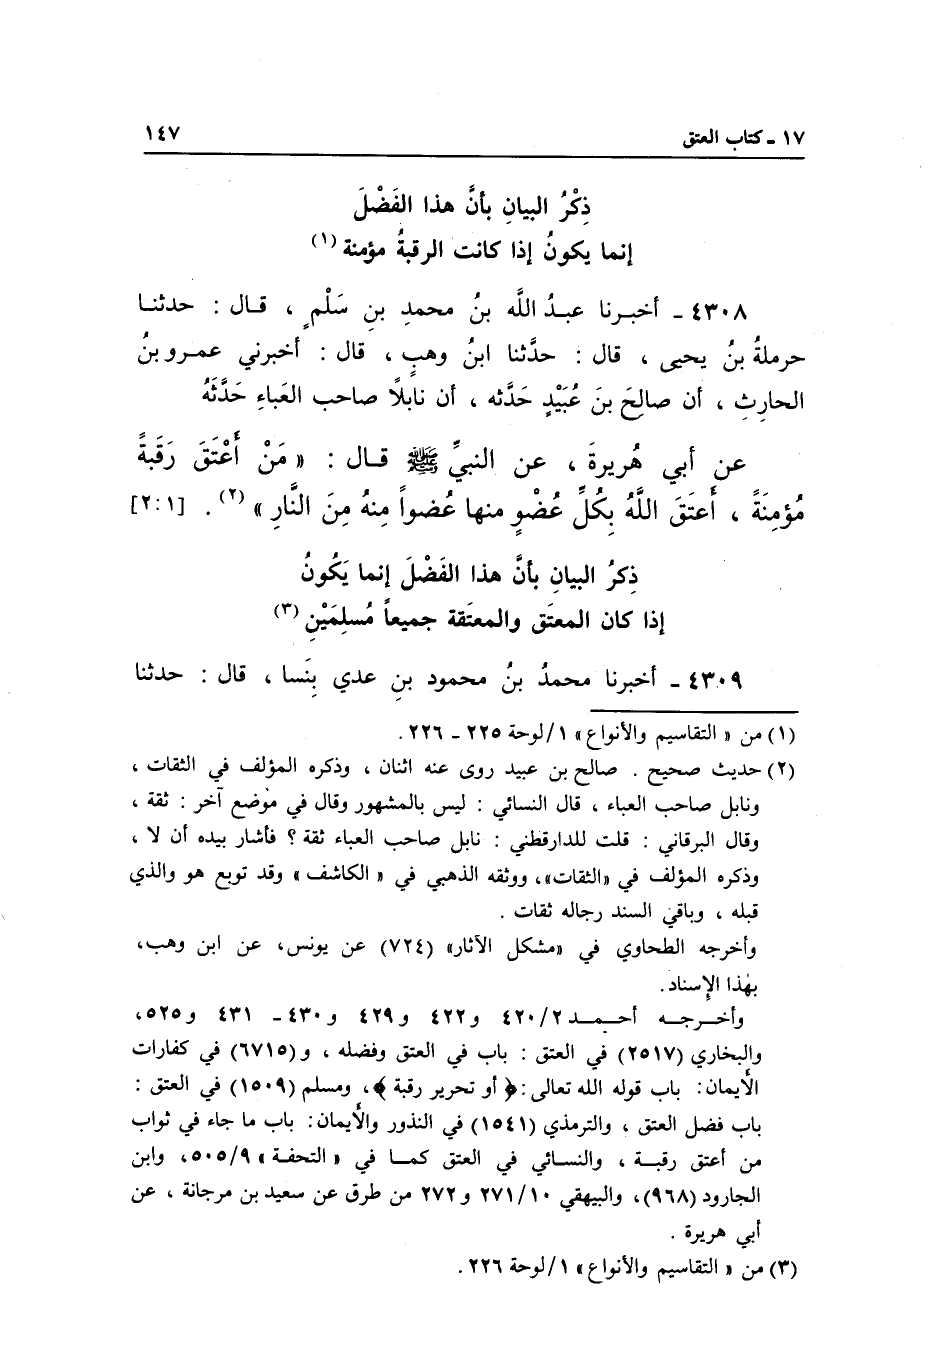 ١٧ - كتاب العتق ١٤٧
ذِكْرُ البيانِ بأنَّ هذا الفَضْلَ
إنما يكونُ إذا كانت الرقبةُ مؤمنة (١)
٤٣٠٨ - أخبرنا عبدُ اللَّه بنُ محمدِ بنِ سَلْمٍ ، قال : حدثنا
حرملةُ بنُ يحيى ، قال : حدَّثنا ابنُ وهبٍ ، قال : أخبرني عمرو بنُ
الحارِثِ ، أن صالِحَ بنَ عُبَيْدٍ حَدَّثه ، أن نابلًا صاحب العَباءِ حَدَّثَهُ
عن أبي هُريرةَ ، عن النبيِّ ﷺ قال : « مَنْ أَعْتَقَ رَقَبَةً
مُؤمِنَةً ، أَعتَقَ اللَّهُ بِكُلِّ عُضْوٍ منها عُضواً مِنهُ مِنَ النَّارِ » (٢) . [٢:١]
ذِكرُ البيانِ بأنَّ هذا الفَضْلَ إنما يَكُونُ
إذا كان المعتَق والمعتَقة جميعاً مُسلِمَيْنِ (٣)
٤٣٠٩ - أخبرنا محمدُ بنُ محمود بنِ عدي بِنَسا ، قال : حدثنا
(١) من « التقاسيم والأنواع » ١/لوحة ٢٢٥ - ٢٢٦ .
(٢) حديث صحيح . صالح بن عبيد روى عنه اثنان ، وذكره المؤلف في الثقات ،
ونابل صاحب العباء ، قال النسائي : ليس بالمشهور وقال في موضع آخر : ثقة ،
وقال البرقاني : قلت للدارقطني : نابل صاحب العباء ثقة ؟ فأشار بيده أن لا ،
وذكره المؤلف في «الثقات»، ووثقه الذهبي في « الكاشف » وقد توبع هو والذي
قبله ، وباقي السند رجاله ثقات .
وأخرجه الطحاوي في «مشكل الآثار» (٧٢٤) عن يونس، عن ابن وهب،
بهٰذا الإِسناد.
وأخرجه أحمد ٤٢٠/٢ و٤٢٢ و٤٢٩ و٤٣٠ - ٤٣١ و٥٢٥،
والبخاري (٢٥١٧) في العتق : باب في العتق وفضله ، و(٦٧١٥) في كفارات
الأيمان: باب قوله الله تعالى :﴿ أو تحرير رقبة ﴾، ومسلم (١٥٠٩) في العتق :
باب فضل العتق ، والترمذي (١٥٤١) في النذور والأيمان: باب ما جاء في ثواب
من أعتق رقبة ، والنسائي في العتق كما في « التحفة » ٥٠٥/٩، وابن
الجارود (٩٦٨)، والبيهقي ٢٧١/١٠ و٢٧٢ من طرق عن سعيد بن مرجانة ، عن
أبي هريرة .
(٣) من « التقاسيم والأنواع » ١/لوحة ٢٢٦ .